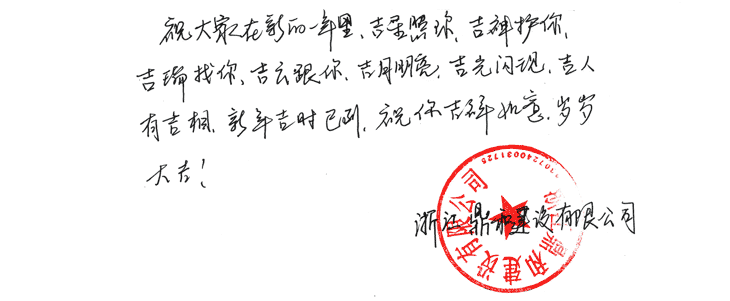 祝大家在新的一年里、吉星照你、吉神护你、
吉瑞找你、吉云跟你、吉月明亮、吉光闪现、吉人
有吉相、新年吉时已到、祝你吉祥如意、岁岁
大吉！
浙江鼎和建设有限公司
浙江鼎和建设有限公司
3307240031725